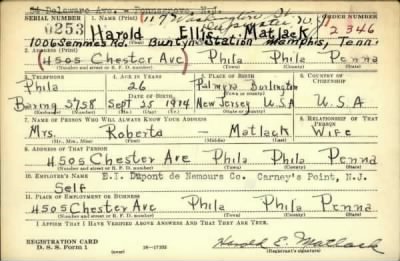 54 Delaware Ave. - Pennsgrove, N.J.
SERIAL NUMBER 1. NAME (Print) ORDER NUMBER
0253 Harold Ellis Matlack 2346
(First) (Middle) (Last)
1006 Semmes Rd. Buntyn Station Memphis, Tenn.
2. ADDRESS (Print)
(4505 Chester Ave) Phila Phila Penna
(Number and street or R. F. D. number) (Town) (County) (State)
3. TELEPHONE 4. AGE IN YEARS 5. PLACE OF BIRTH 6. COUNTRY OF CITIZENSHIP
Phila 26 Palmyra Burlington
DATE OF BIRTH (Town or county)
Baring 5758 Sept 25 1914 New Jersey U.S.A U.S.A.
(Exchange) (Number) (Mo.) (Day) (Yr.) (State or country)
7. NAME OF PERSON WHO WILL ALWAYS KNOW YOUR ADDRESS 8. RELATIONSHIP OF THAT PERSON
Mrs. Roberta — Matlack Wife
(Mr., Mrs., Miss) (First) (Middle) (Last)
9. ADDRESS OF THAT PERSON
4505 Chester Ave Phila Phila Penna
(Number and street or R. F. D. number) (Town) (County) (State)
10. EMPLOYER'S NAME E.I. Dupont de Nemours Co. Carney's Point, N.J.
Self
11. PLACE OF EMPLOYMENT OR BUSINESS
4505 Chester Ave Phila Phila Penna
(Number and street or R. F. D. number) (Town) (County) (State)
I AFFIRM THAT I HAVE VERIFIED ABOVE ANSWERS AND THAT THEY ARE TRUE.
REGISTRATION CARD
D. S. S. Form 1 (over) 16-17105 Harold E. Matlack
(Registrant's signature)